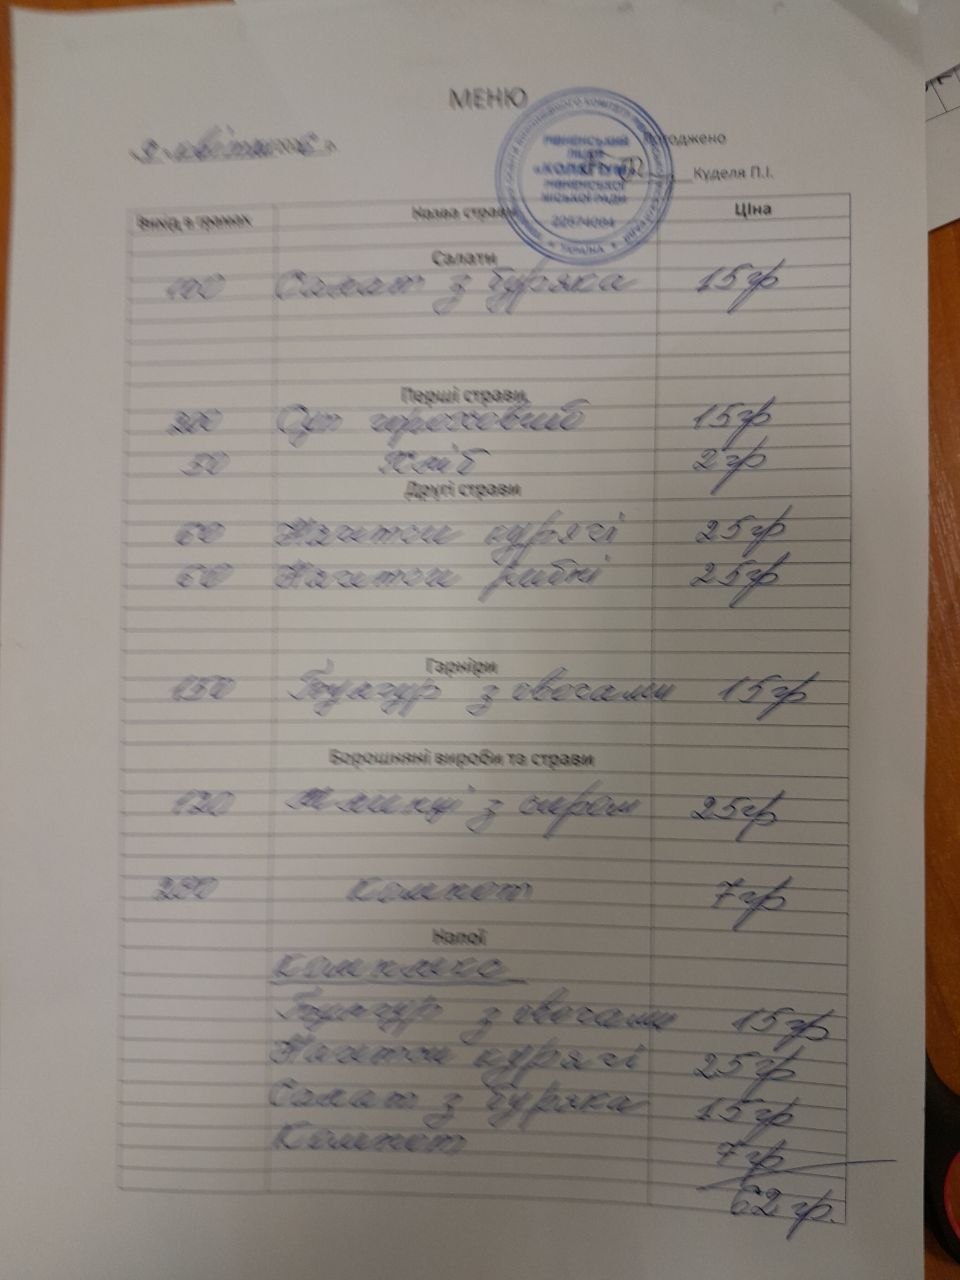 МЕНЮ
Погоджено
Куделя П.І.
РІВНЕНСЬКИЙ
ЛІЦЕЙ
«КОЛЕГІУМ»
РІВНЕНСЬКОЇ
МІСЬКОЇ РАДИ
22574084
УКРАЇНА
Вихід в грамах Назва страви Ціна
Салати
100 Салат з буряка 15гр
Перші страви
300 Суп гороховий 15гр
30 Хліб 2гр
Другі страви
60 Нагетси курячі 25гр
60 Нагетси рибні 25гр
Гарніри
150 Булгур з овочами 15гр
Борошняні вироби та страви
120 млинці з сиром 25гр
200 Компот 7гр
Напої
Комплекс
Булгур з овочами 15гр
Нагетси курячі 25гр
Салат з буряка 15гр
Компот 7гр
62гр.